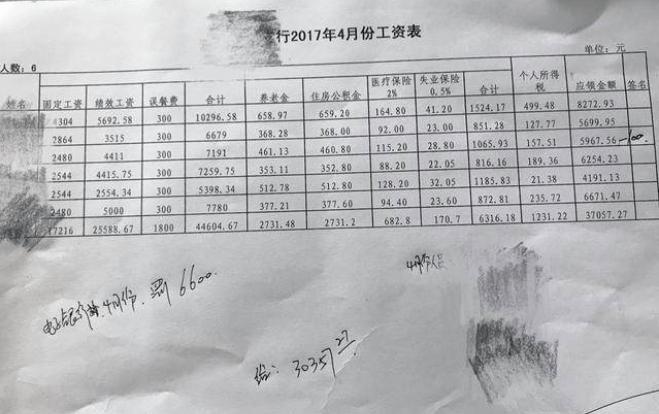 行2017年4月份工资表
人数：6 单位：元
姓名 固定工资 绩效工资 误餐费 合计 养老金 住房公积金 医疗保险2% 失业保险0.5% 合计 个人所得税 应领金额 签名
4304 5692.58 300 10296.58 658.97 659.20 164.80 41.20 1524.17 499.48 8272.93
2864 3515 300 6679 368.28 368.00 92.00 23.00 851.28 127.77 5699.95
2480 4411 300 7191 461.13 460.80 115.20 28.80 1065.93 157.51 5967.56 -100
2544 4415.75 300 7259.75 353.11 352.80 88.20 22.05 816.16 189.36 6254.23
2544 2554.34 300 5398.34 512.78 512.80 128.20 32.05 1185.83 21.38 4191.13
2480 5000 300 7780 377.21 377.60 94.40 23.60 872.81 235.72 6671.47
17216 25588.67 1800 44604.67 2731.48 2731.2 682.8 170.7 6316.18 1231.22 37057.27
4月份
4月份 罚6600.
30357.27